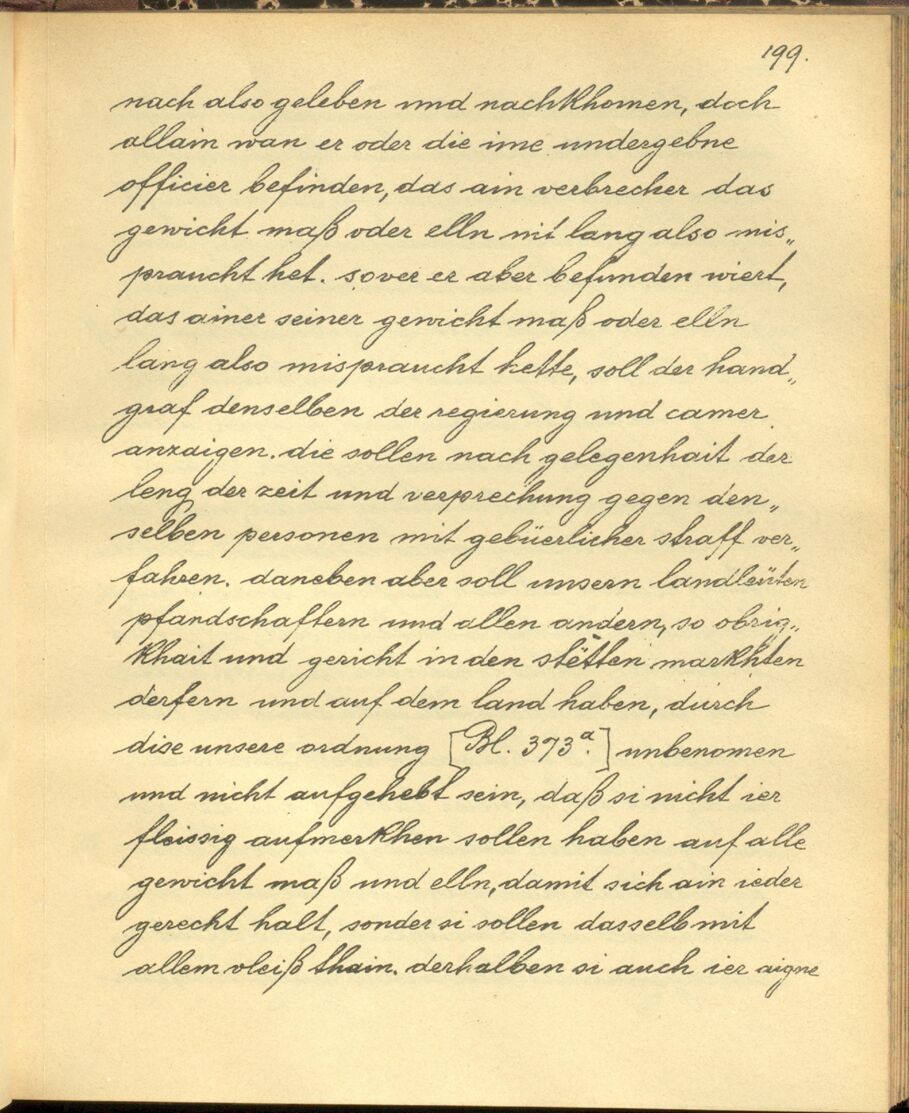 199.
nach also geleben und nachkhomen, doch
allain wan er oder die ime undergebne
officier befinden, das ain verbrecher das
gewicht maß oder elln nit lang also mis„
praucht het. sover er aber befunden wiert,
das ainer seiner gewicht maß oder elln
lang also mispraucht hette, soll der hand„
graf denselben der regierung und camer
anzaigen. die sollen nach gelegenhait der
leng der zeit und verprechung gegen den„
selben personen mit gebüerlicher straff ver„
fahren. daneben aber soll unsern landleüten
pfandschaftern und allen andern, so obrig„
khait und gericht in den stëtten markhten
derfern und auf dem land haben, durch
dise unsere ordnung [Bl. 373a.] unbenomen
und nicht aufgehebt sein, daß si nicht ier
fleissig aufmerkhen sollen haben auf alle
gewicht maß und elln, damit sich ain ieder
gerecht halt, sonder si sollen dasselb mit
allem vleiß thain. derhalben si auch ier aigne